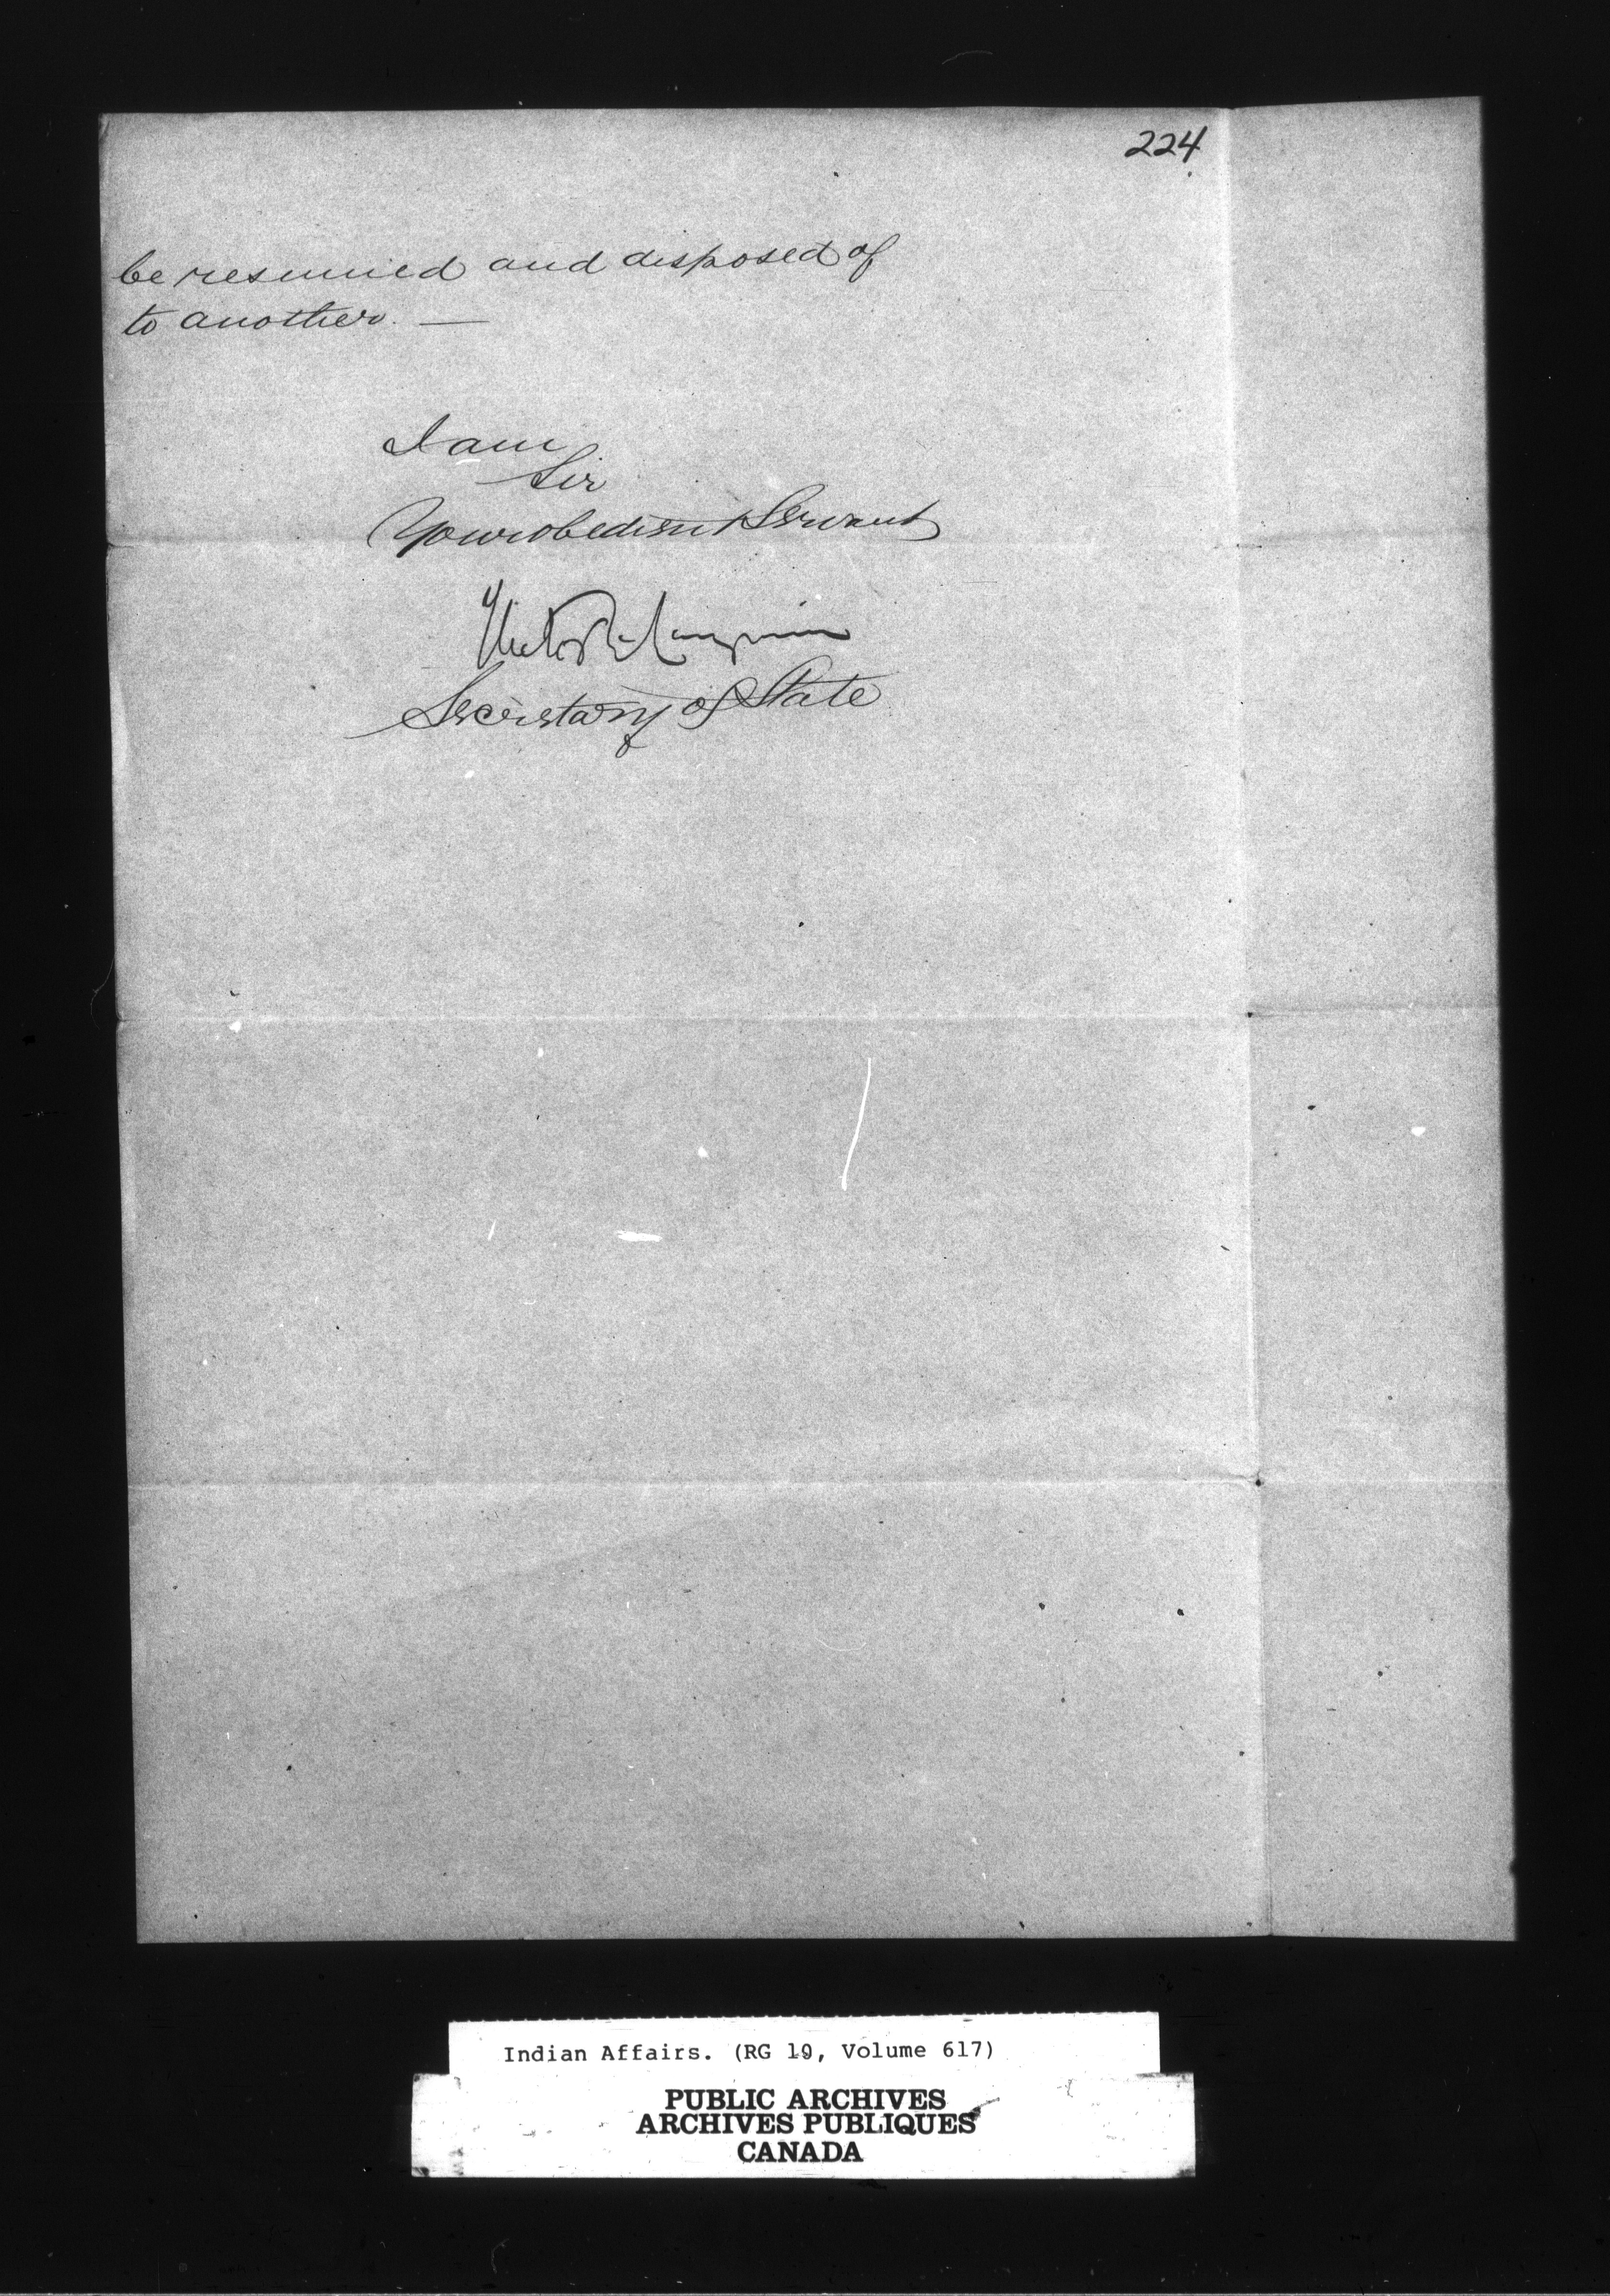 224
be resumed and disposed of
to another. —
I am
Sir
Your obedient Servant
Hector L. Langevin
Secretary of State
Indian Affairs. (RG 10, Volume 617)
PUBLIC ARCHIVES
ARCHIVES PUBLIQUES
CANADA